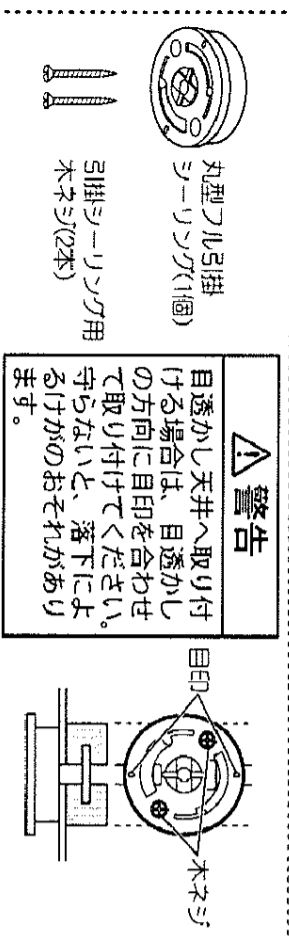 丸型フル引掛
シーリング(1個)
引掛シーリング用
木ネジ(2本)
警告
目透かし天井へ取り付
ける場合は、目透かし
の方向に目印を合わせ
て取り付けてください。
守らないと、落下によ
るけがのおそれがあり
ます。
目印
木ネジ